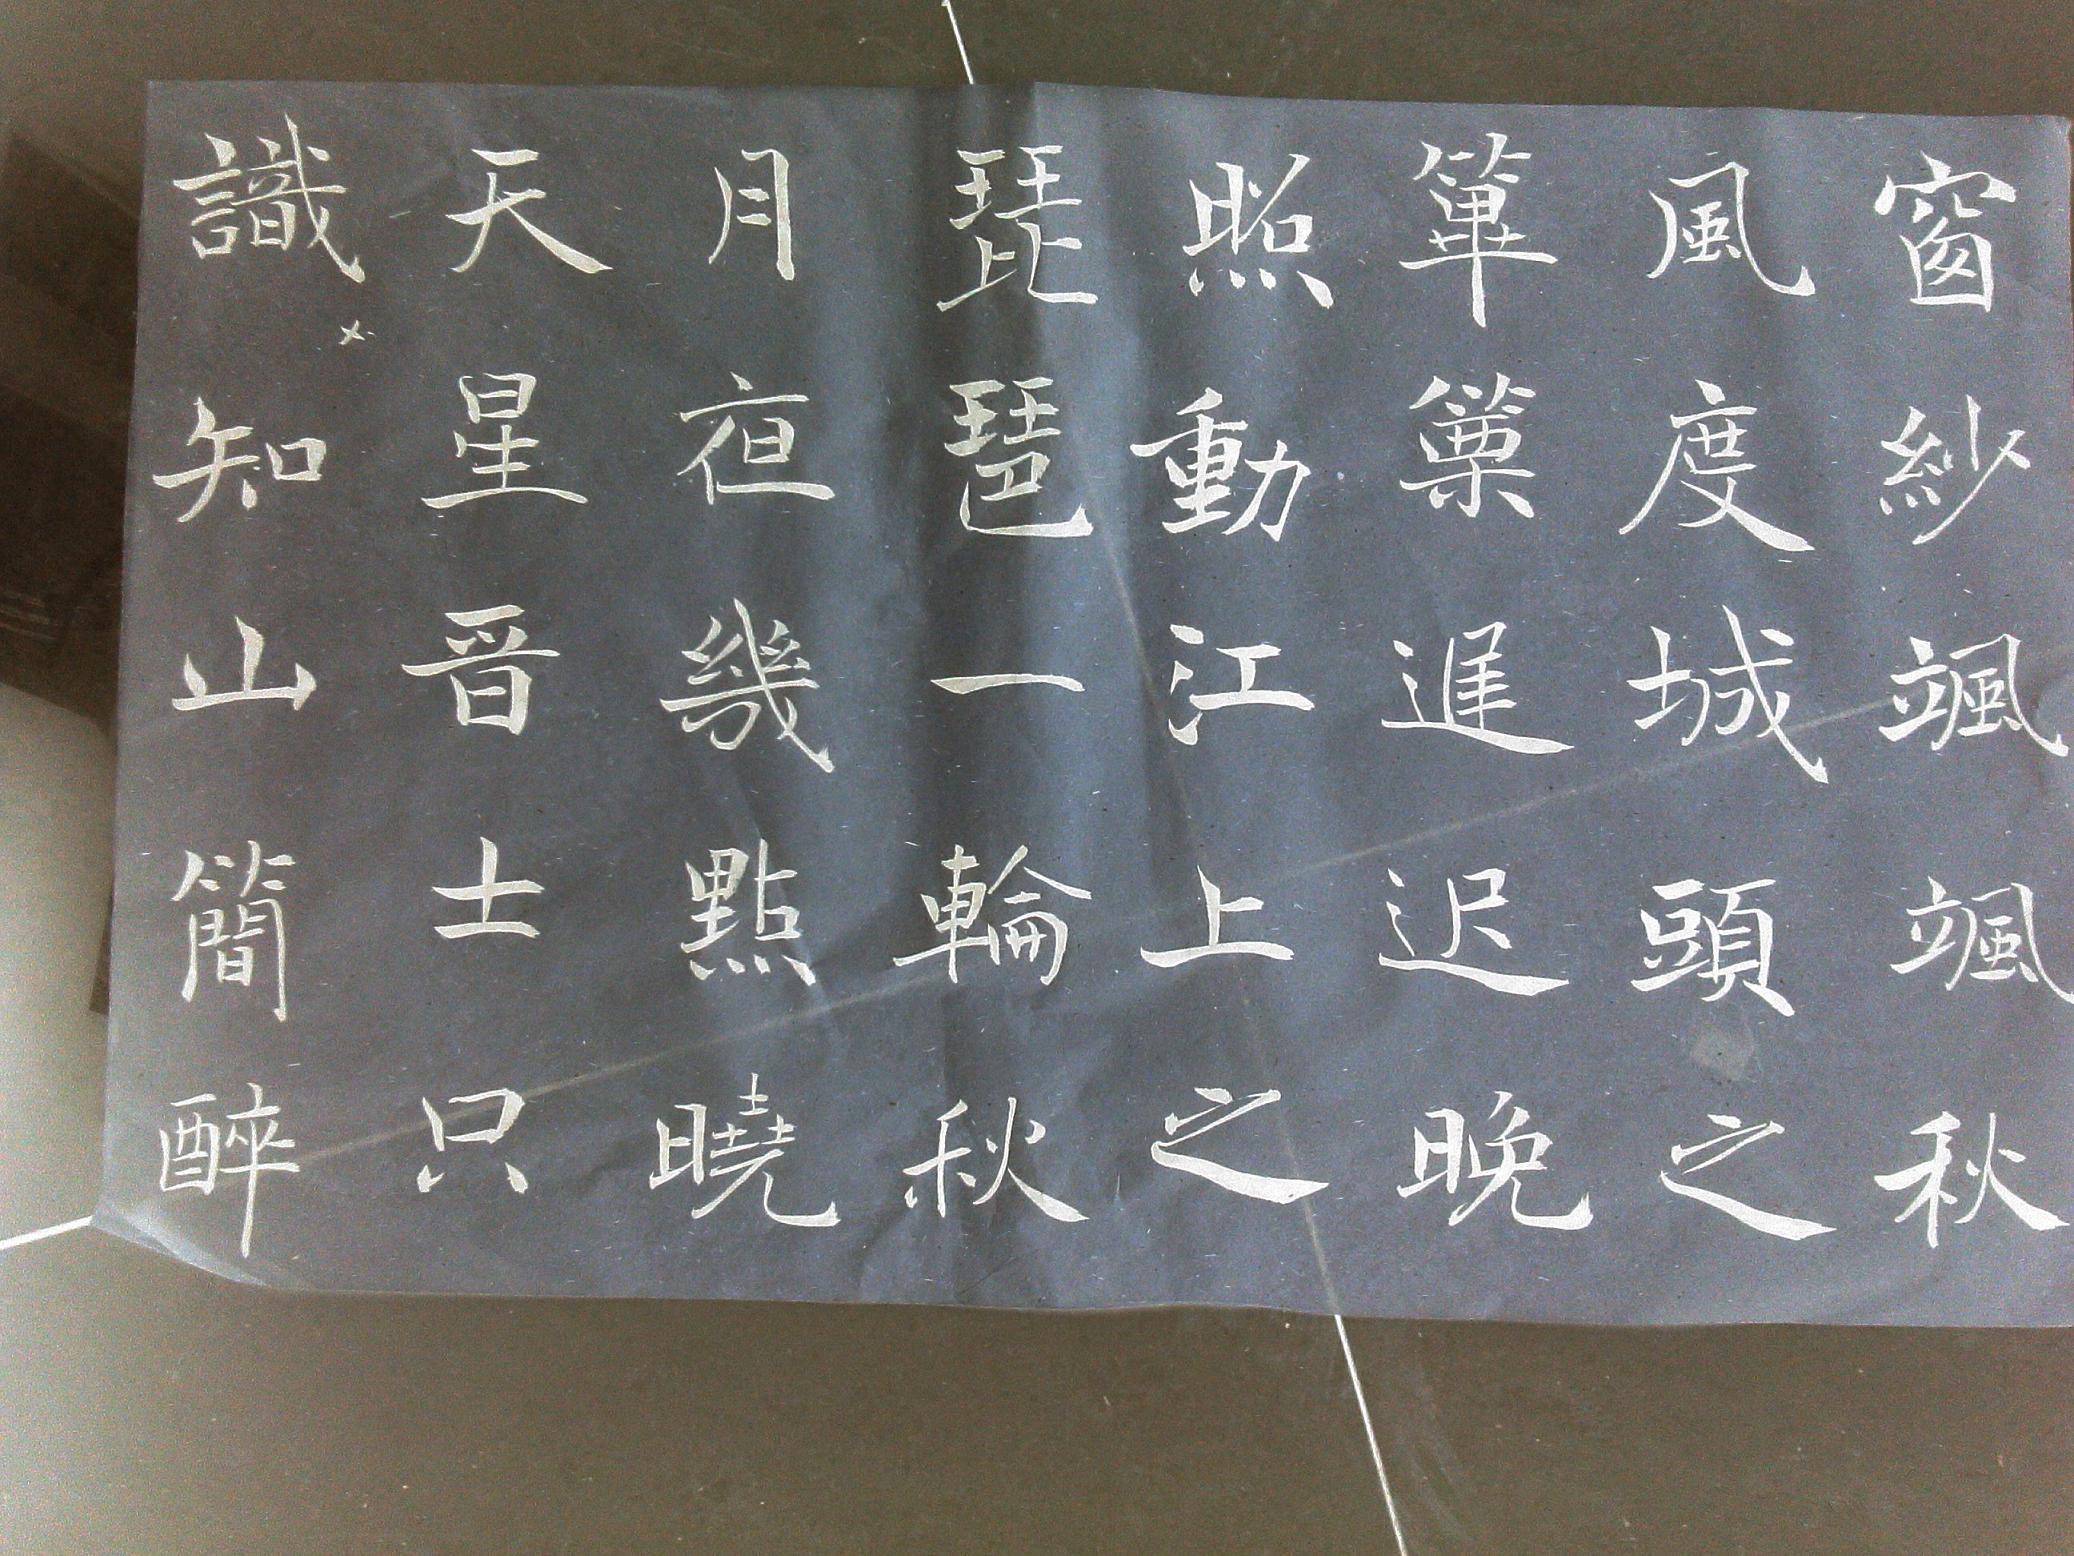 窗紗颯颯秋
風度城頭之
篳篥進迟晚
照動江上之
琵琶一輪秋
月夜幾點曉
天星晉士只
識知山簡醉